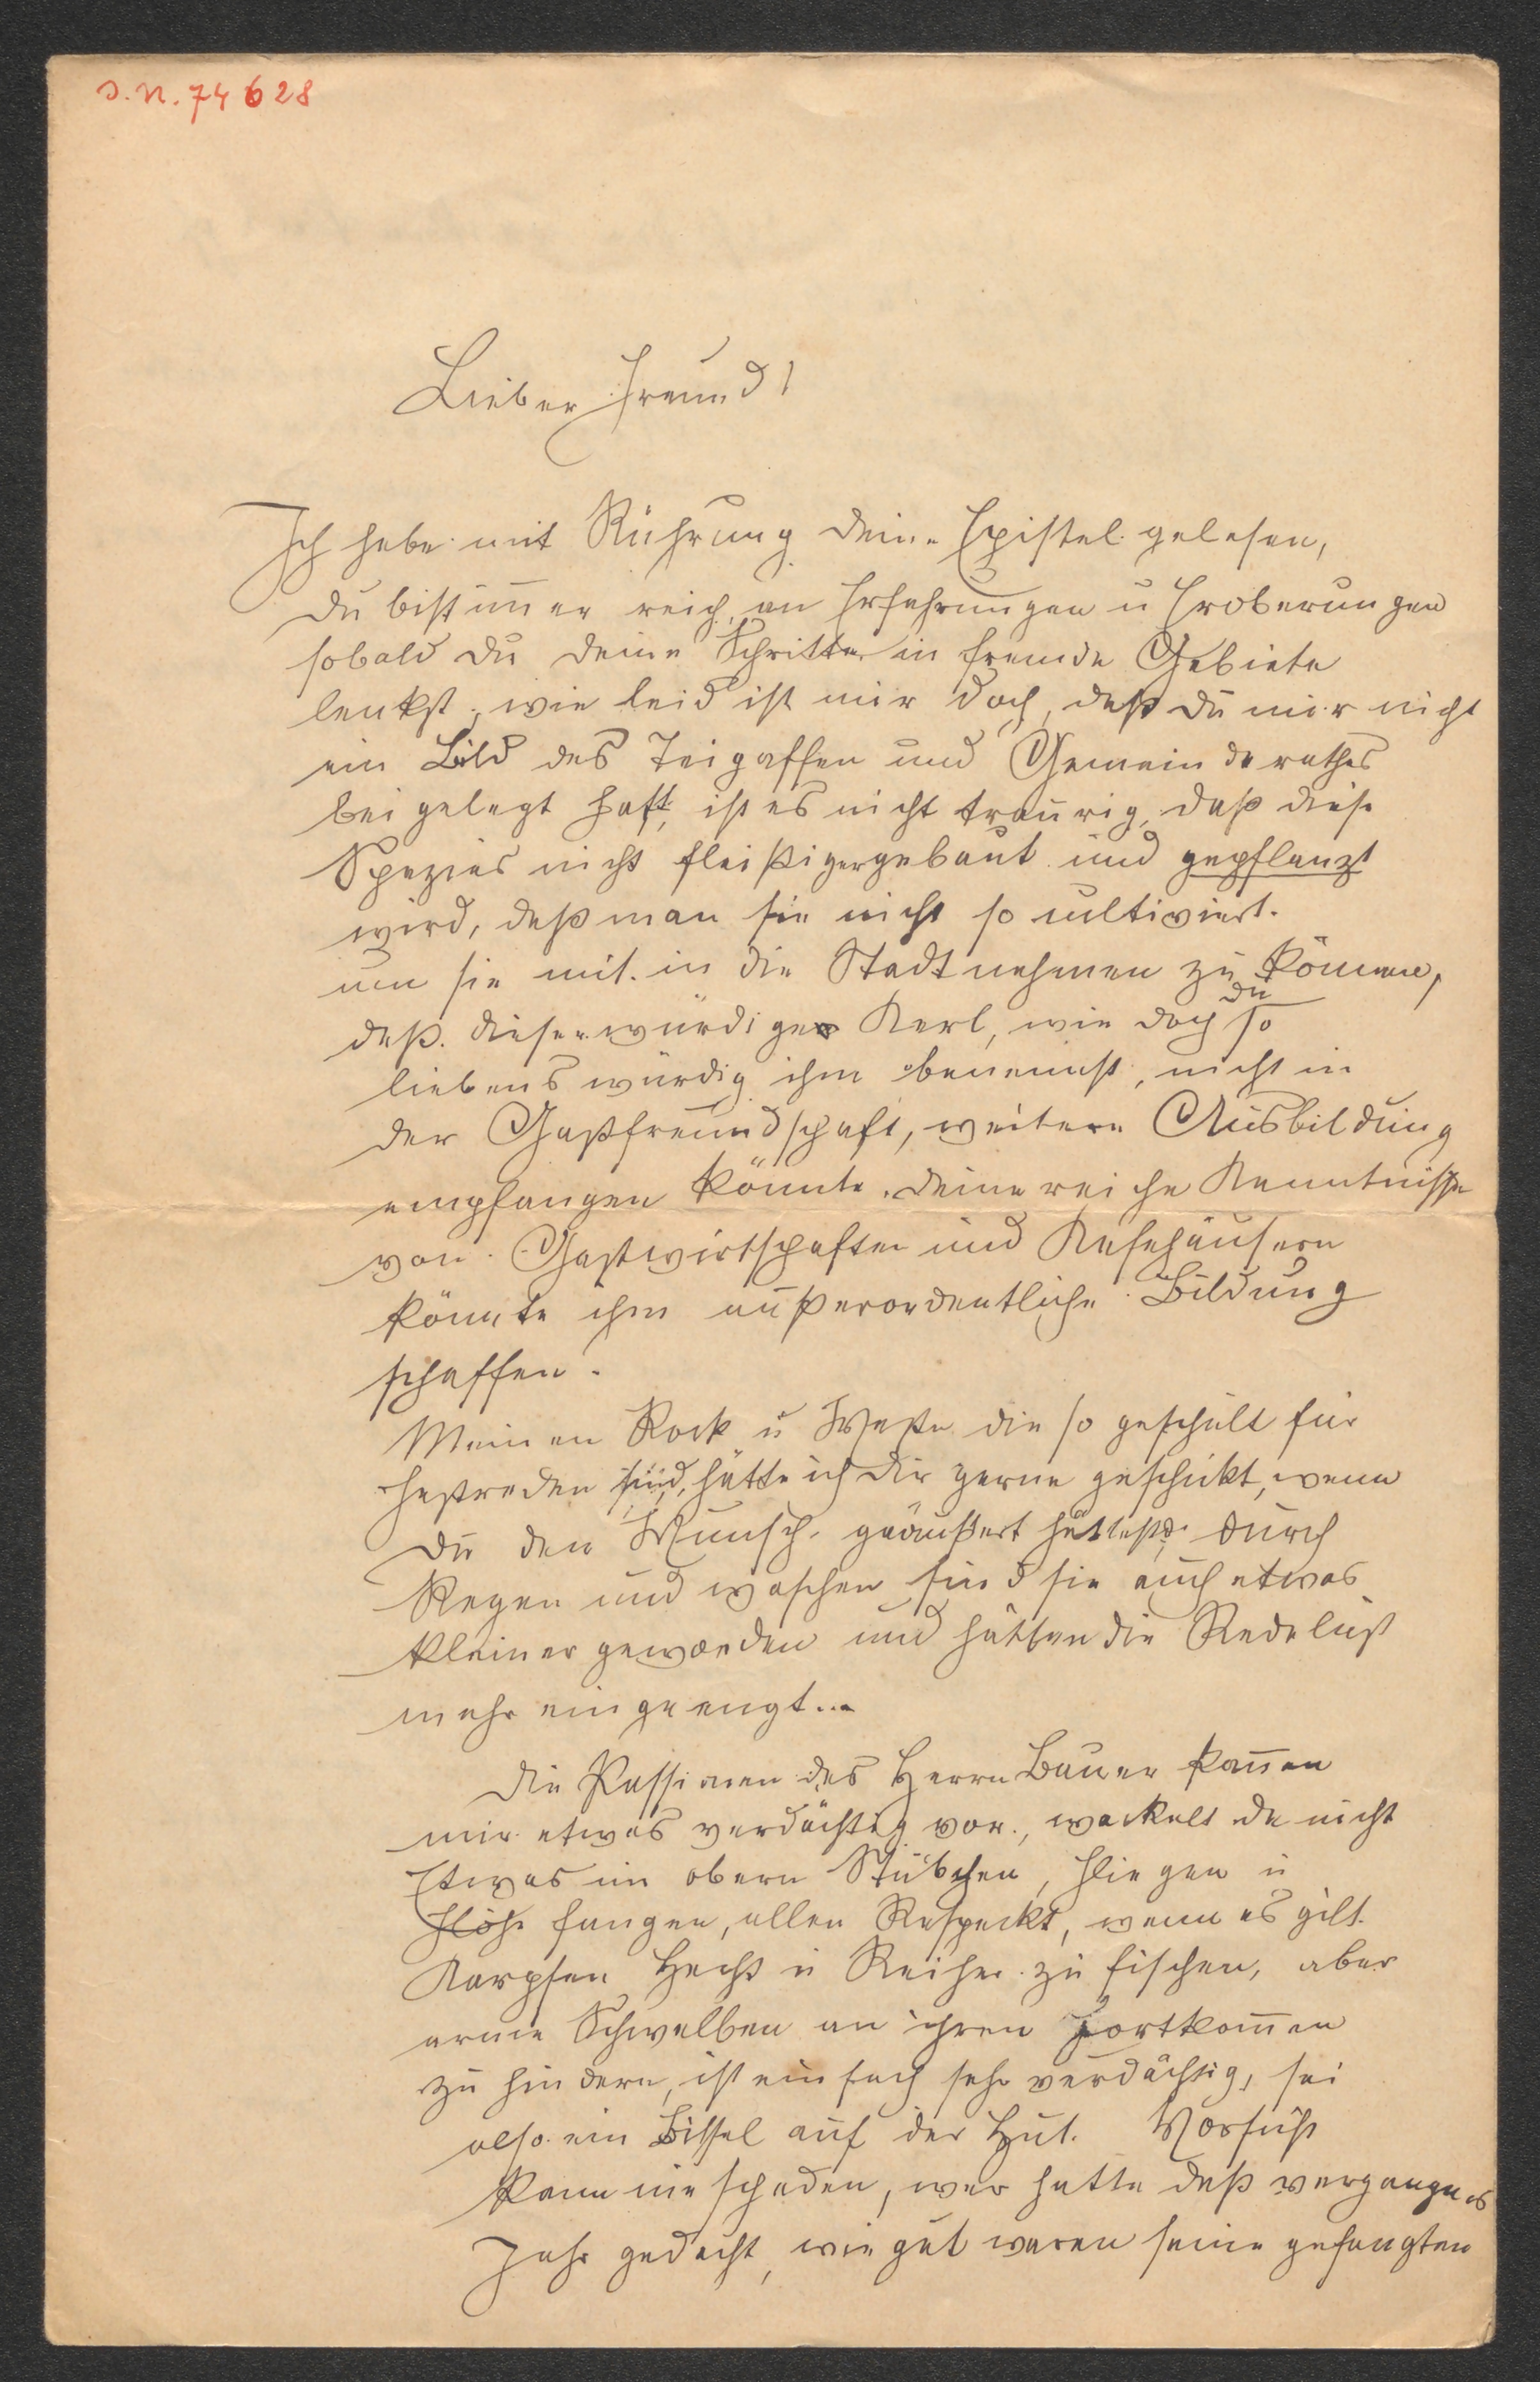 I. N. 74628
Lieber Freund!
Ich habe mit Rührung deine Epistel gelesen,
du bist im̅er reich an Erfahrungen u Eroberungen
sobald du deine Schritte in fremde Gebiete
lenkst; wie leid ist mir doch, daß du mir nicht
ein Bild des Teigaffen und Gemeinderathes
beigelegt hast, ist es nicht traurig, daß diese
Spezies nicht fleißiger gebaut und gepflanzt
wird, daß man sie nicht so cultiviert.
um sie mit in die Stadt nehmen zu können,
daß dieser würdige Kerl, wie doch du so
liebenswürdig ihm benennst, nicht in
der Gastfreundschaft, weitere Ausbildung
empfangen könnte. deine reiche Kenntnisse
von Gastwirtschaften und Kafehäusern
könnte ihm außerordentliche Bildung
schaffen.
Meinen Rock u Weste die so geschult für
Festreden sind, hätte ich dir gerne geschickt, wenn
du den Wunsch geäußert hättest, durch
Regen und waschen sind sie auch etwas
kleiner geworden und hätten die Redelust
mehr eingeengt...
Die Passionen des Herrn Bauer kom̅en
mir etwas verdächtig vor, wackelt da nicht
Etwas im obern Stübchen, Fliegen u
Flöhe fangen, allen Respeckt, wenn es gilt
Karpfen Hecht u Reiher zu fischen, aber
arme Schwalben an ihren Fortkom̅en
zu hindern, ist einfach sehr verdächtig, sei
also ein Bissel auf der Hut. Vorsicht
kann nie schaden, wer hatte daß vergangnes
Jahr gedacht, wie gut waren seine gefangten